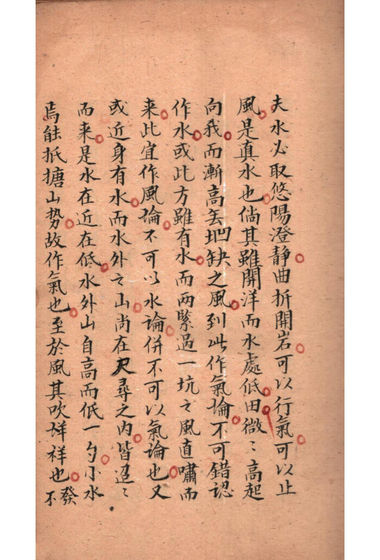 夫水必取悠陽澄静曲折開岩可以行氣可以止
風是真水也倘其雖開洋而水處低田微〻高起
向我而漸高丟凹缺之風到此作氣論不可錯認
作水或此方雖有水而兩緊過一坑之風直嘯而
来此宜作風論不可以水論併不可以氣論也又
或近身有水而水外之山尚在尺尋之内皆迢〻
而来是水在近在低水外山自高而低一勺小水
焉能抵搪山势故作氣也至於風其吹烊祥也發不